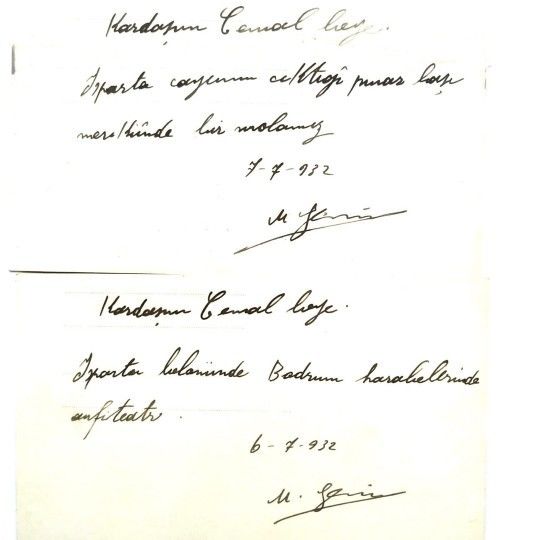 Kardaşım Cemal beye.
Isparta çayının çıktığı pınar başı
mevkiinde bir molamız
7-7-932
M.
Kardaşım Cemal beye.
Isparta Bodrum harabelerinde
anfiteatr.
6-7-932
M.